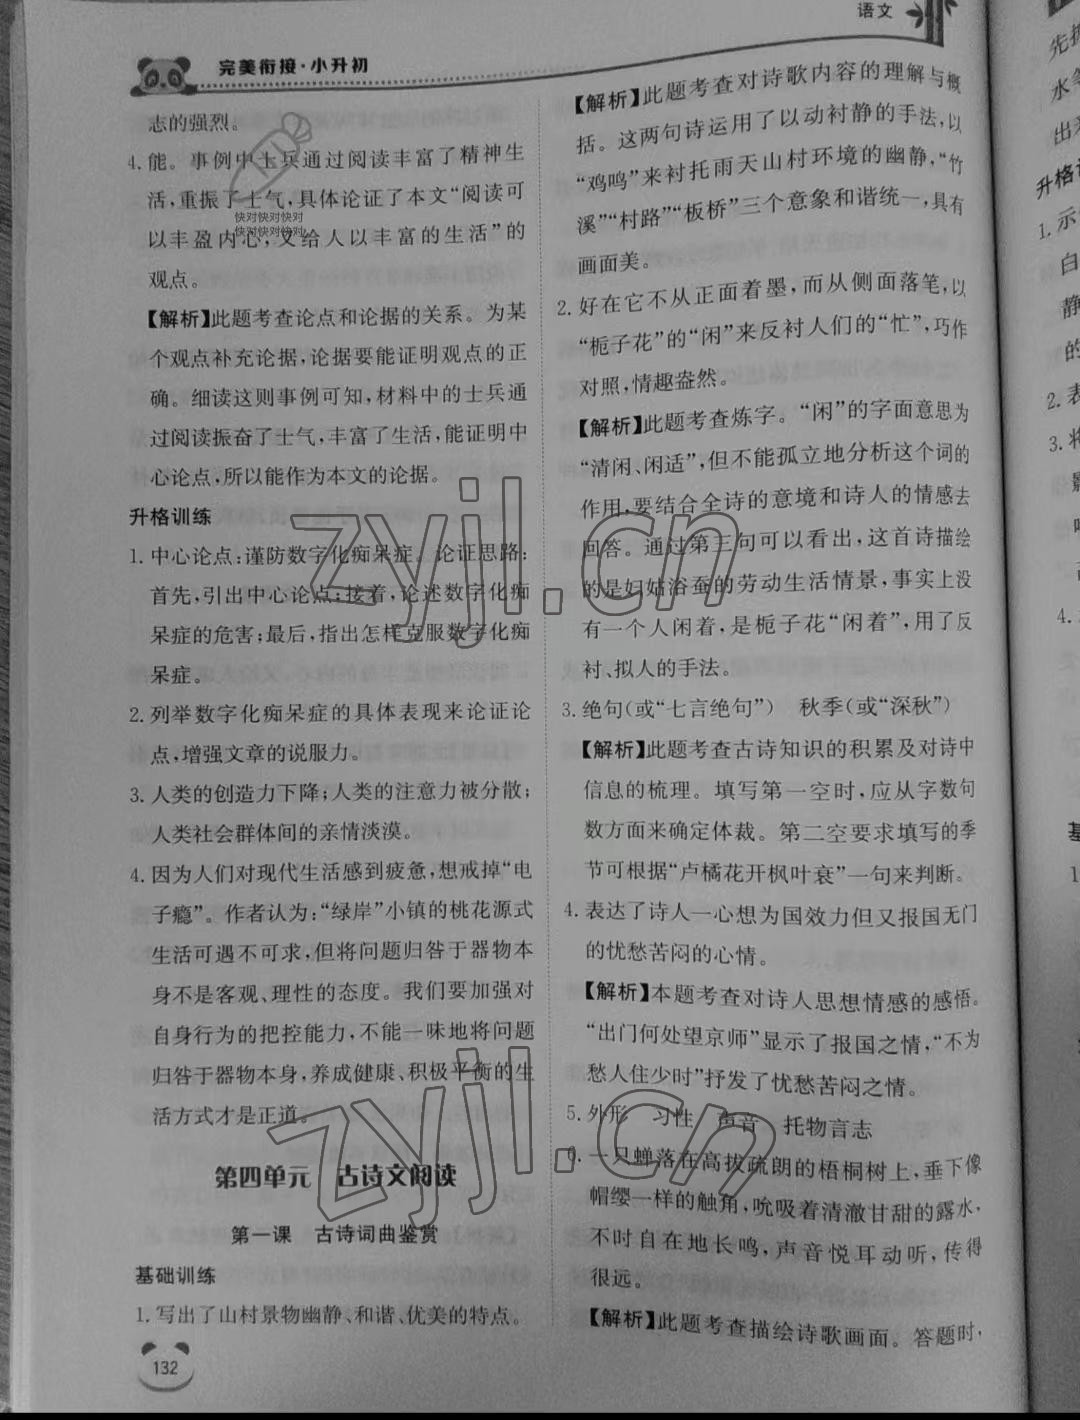 语文
完美衔接·小升初
志的强烈。
4. 能。事例中士兵通过阅读丰富了精神生
活,重振了士气,具体论证了本文“阅读可
以丰盈内心,又给人以丰富的生活”的
观点。
【解析】此题考查论点和论据的关系。为某
个观点补充论据,论据要能证明观点的正
确。细读这则事例可知,材料中的士兵通
过阅读振奋了士气,丰富了生活,能证明中
心论点,所以能作为本文的论据。
升格训练
1. 中心论点:谨防数字化痴呆症。论证思路:
首先,引出中心论点;接着,论述数字化痴
呆症的危害;最后,指出怎样克服数字化痴
呆症。
2. 列举数字化痴呆症的具体表现来论证论
点,增强文章的说服力。
3. 人类的创造力下降;人类的注意力被分散;
人类社会群体间的亲情淡漠。
4. 因为人们对现代生活感到疲惫,想戒掉“电
子瘾”。作者认为:“绿岸”小镇的桃花源式
生活可遇不可求,但将问题归咎于器物本
身不是客观、理性的态度。我们要加强对
自身行为的把控能力,不能一味地将问题
归咎于器物本身,养成健康、积极平衡的生
活方式才是正道。
第四单元 古诗文阅读
第一课 古诗词曲鉴赏
基础训练
1. 写出了山村景物幽静、和谐、优美的特点。
132
【解析】此题考查对诗歌内容的理解与概
括。这两句诗运用了以动衬静的手法,以
“鸡鸣”来衬托雨天山村环境的幽静,“竹
溪”“村路”“板桥”三个意象和谐统一,具有
画面美。
2. 好在它不从正面着墨,而从侧面落笔,以
“栀子花”的“闲”来反衬人们的“忙”,巧作
对照,情趣盎然。
【解析】此题考查炼字。“闲”的字面意思为
“清闲、闲适”,但不能孤立地分析这个词的
作用,要结合全诗的意境和诗人的情感去
回答。通过第三句可以看出,这首诗描绘
的是妇姑浴蚕的劳动生活情景,事实上没
有一个人闲着,是栀子花“闲着”,用了反
衬、拟人的手法。
3. 绝句(或“七言绝句”) 秋季(或“深秋”)
【解析】此题考查古诗知识的积累及对诗中
信息的梳理。填写第一空时,应从字数句
数方面来确定体裁。第二空要求填写的季
节可根据“卢橘花开枫叶衰”一句来判断。
4. 表达了诗人一心想为国效力但又报国无门
的忧愁苦闷的心情。
【解析】本题考查对诗人思想情感的感悟。
“出门何处望京师”显示了报国之情,“不为
愁人住少时”抒发了忧愁苦闷之情。
5. 外形 习性 声音 托物言志
6. 一只蝉落在高拔疏朗的梧桐树上,垂下像
帽缨一样的触角,吮吸着清澈甘甜的露水,
不时自在地长鸣,声音悦耳动听,传得
很远。
【解析】此题考查描绘诗歌画面。答题时,
快对快对快对
快对快对快对
zyjl.cn
zyjl.cn
先
水
出
升格
1. 示
白
静
的
2. 表
3. 将
4.
基
1